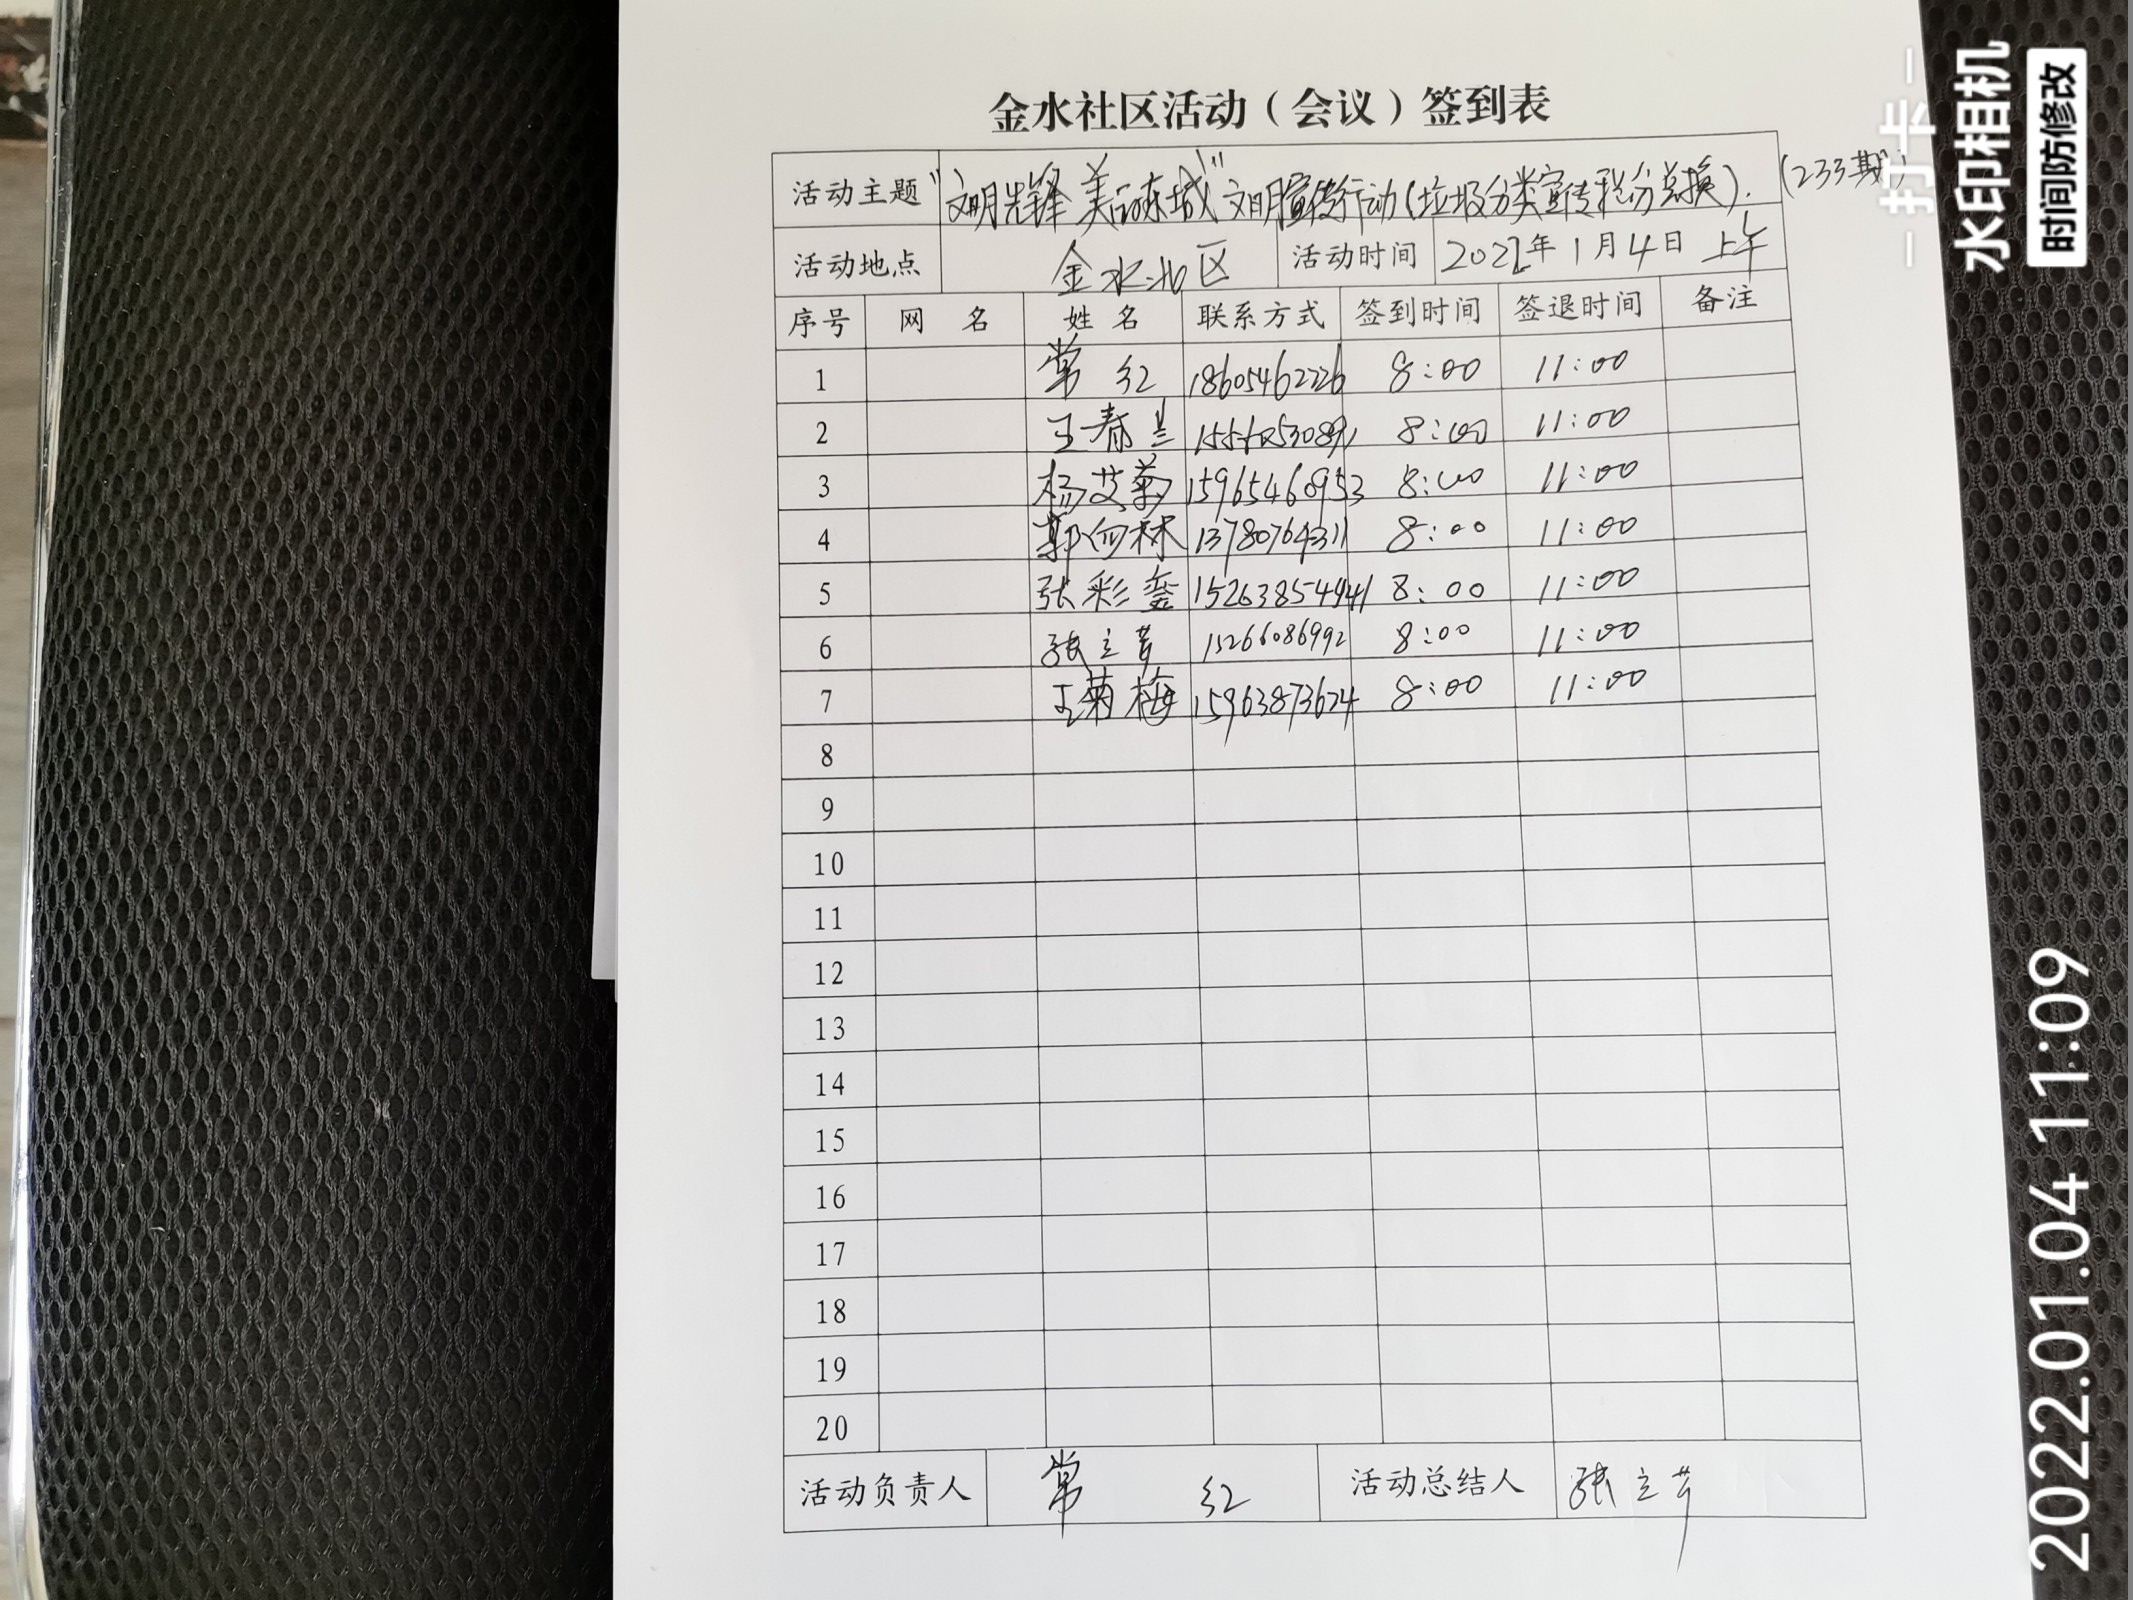 金水社区活动（会议）签到表
活动主题 "文明先锋 美丽东城"文明宣传行动(垃圾分类宣传积分兑换). (233期)
活动地点 金水北区 活动时间 2022年1月4日 上午
序号 网 名 姓 名 联系方式 签到时间 签退时间 备注
1 常 红 18605462226 8:00 11:00
2 王春兰 8:00 11:00
3 杨艾菊 15965460953 8:00 11:00
4 13780764311 8:00 11:00
5 张彩銮 15263854941 8:00 11:00
6 张立芳 15266086992 8:00 11:00
7 王菊梅 15963873624 8:00 11:00
8
9
10
11
12
13
14
15
16
17
18
19
20
活动负责人 常 红 活动总结人 张立芳
-打卡-
水印相机
时间防修改
2022.01.04 11:09